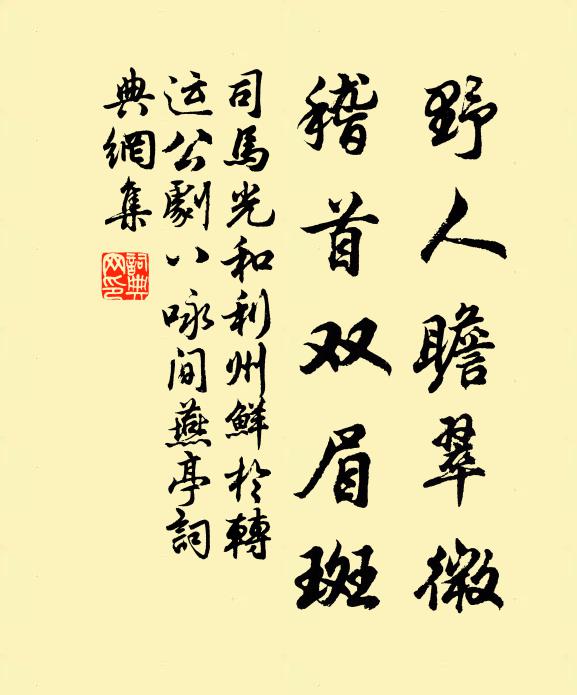 野人瞻翠微
稽首双眉斑
司馬光和利州鮮於轉
运公劇八咏间燕亭詞
典網集
詞典網印